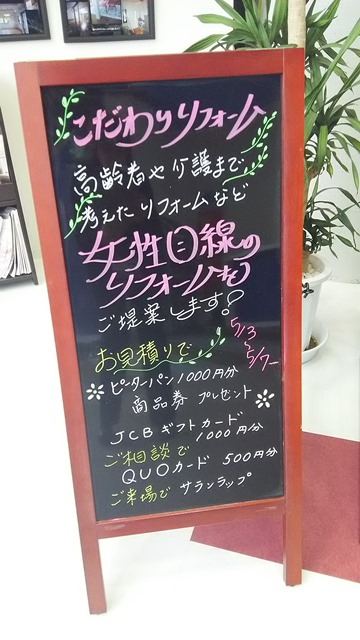 こだわりリフォーム
高齢者や介護まで
考えたリフォームなど
女性目線の
リフォームを
ご提案します!
5/3~5/7
お見積りで
ピーターパン1000円分
商品券 プレゼント
JCBギフトカード
1000円分
ご相談で
QUOカード 500円分
ご来場で サランラップ